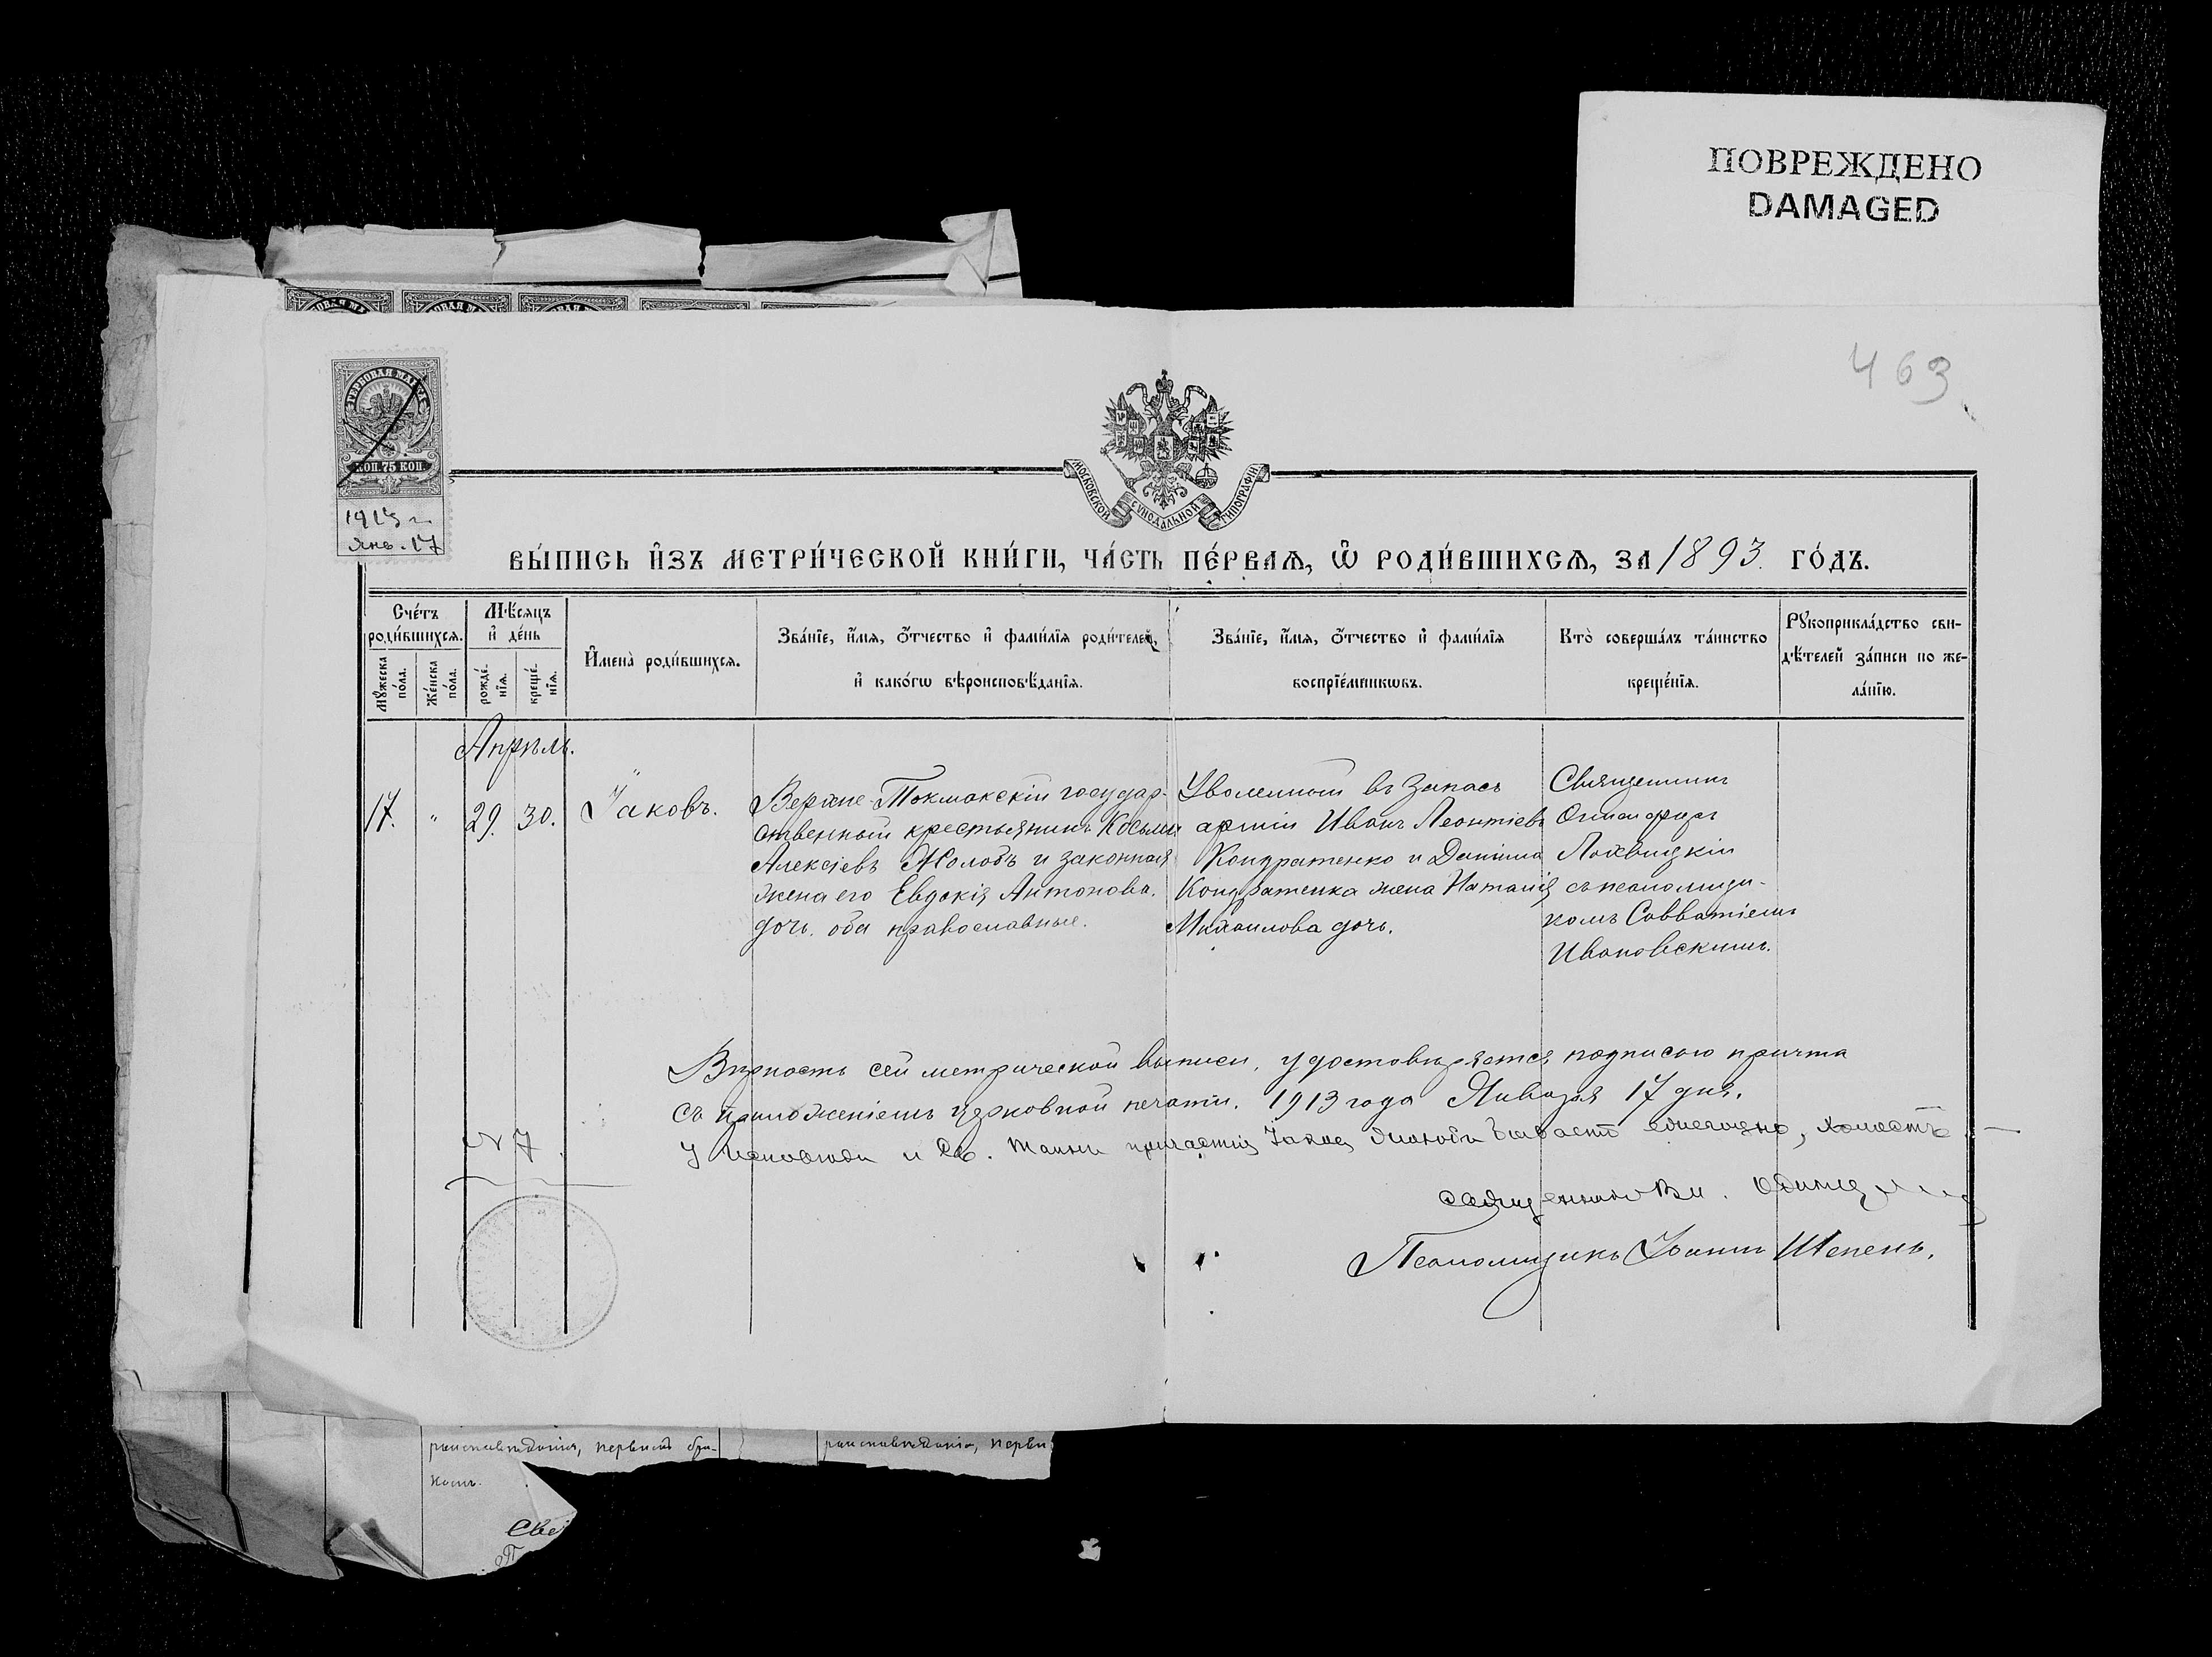 ПОВРЕЖДЕНО
DAMAGED
463
ГЕРБОВАЯ МАРКА
КОП. 75 КОП.
1913 г.
Янв. 17
МОСКОВСКОЙ СѴНОДАЛЬНОЙ ТИПОГРАФІИ
ВЫ́ПИСЬ И҆ЗЪ МЕТРИ́ЧЕСКОЙ КНИ́ГИ, ЧА́СТЬ ПЕ́РВАѦ, Ѽ РОДИ́ВШИХСѦ, ЗА 1893. ГО́ДЪ.
Сче́тъ
роди́вшихсѧ.
Мꙋ́жеска
по́ла.
Же́нска
по́ла.
Мѣ́сѧцъ
и҆ де́нь
рожде́-
нїѧ.
креще́-
нїѧ.
И҆мена̀ роди́вшихсѧ.
Зва́нїе, и҆́мѧ, ѻ҆́тчество и҆ фами́лїѧ роди́телей,
и҆ како́гѡ вѣроисповѣ́данїѧ.
Зва́нїе, и҆́мѧ, ѻ҆́тчество и҆ фами́лїѧ
воспрїе́мникѡвъ.
Кто̀ соверша́лъ та́инство
креще́нїѧ.
Рꙋкоприкла́дство сви-
дѣ́телей за́писи по же-
ла́нїю.
Апрѣль.
17. " 29. 30. Іаковъ.
Верхне-Токмакскій государ-
ственный крестьянинъ Косьма
Алексіевъ Жолобъ и законная
жена его Евдокія Антонова
дочь. оба православные.
Уволенный въ запасъ
арміи Иванъ Леонтіевъ
Кондратенко и Даніила
Кондратенка жена Наталія
Михаилова дочь.
Священникъ
Лохвицкій
съ псаломщи-
комъ Савватіемъ
Ивановскимъ.
Вѣрность сей метрической выписи, удостовѣряется подписью причта
съ приложеніемъ церковной печати. 1913 года Января 17 дня.
У исповѣди и Св. Таинъ причастія Іаковъ Жолобъ бываетъ ежегодно, холостъ
№ 7
священникъ
Псаломщикъ Іоаннъ Шепень.
роисповѣданія, первымъ бра-
комъ.
роисповѣданія, первы
Сви
П